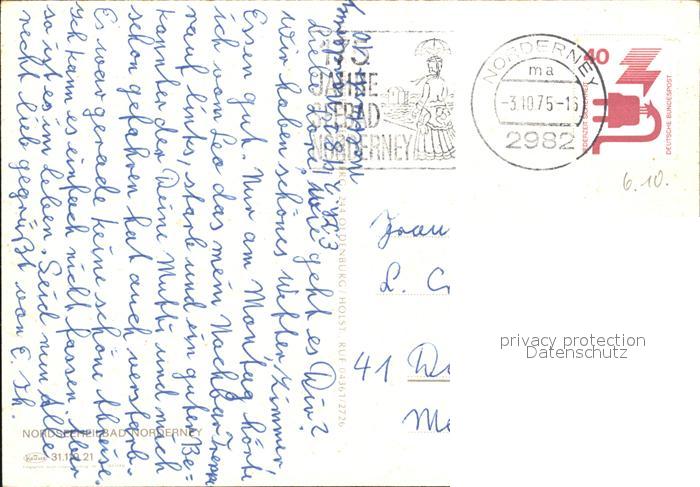 Liebe Lore, wie geht es Dir?
Wir haben schönes Wetter, Zimmer,
Essen gut. Nur am Montag hörte
ich von Leo das mein Nachbar
rauf links starb und ein guter Be=
kannter der Deine Mutti und mich
schon gefahren hat auch verstarb.
Es war gerade keine schöne
Ich kann es einfach nicht fassen. Aber
so ist es im Leben. Seid nun Alle
recht lieb gegrüßt von E. Th.
175
JAHRE
SEEBAD
NORDERNEY
NORDERNEY
ma
-3.10.75-16
2982
40
JEDERZEIT SICHERHEIT
DEUTSCHE BUNDESPOST
6.10.
Frau
L.
41
244 OLDENBURG/HOLST · RUF 04361/2726
privacy protection
Datenschutz
NORDSEEHEILBAD NORDERNEY
Krüger 31.129.21